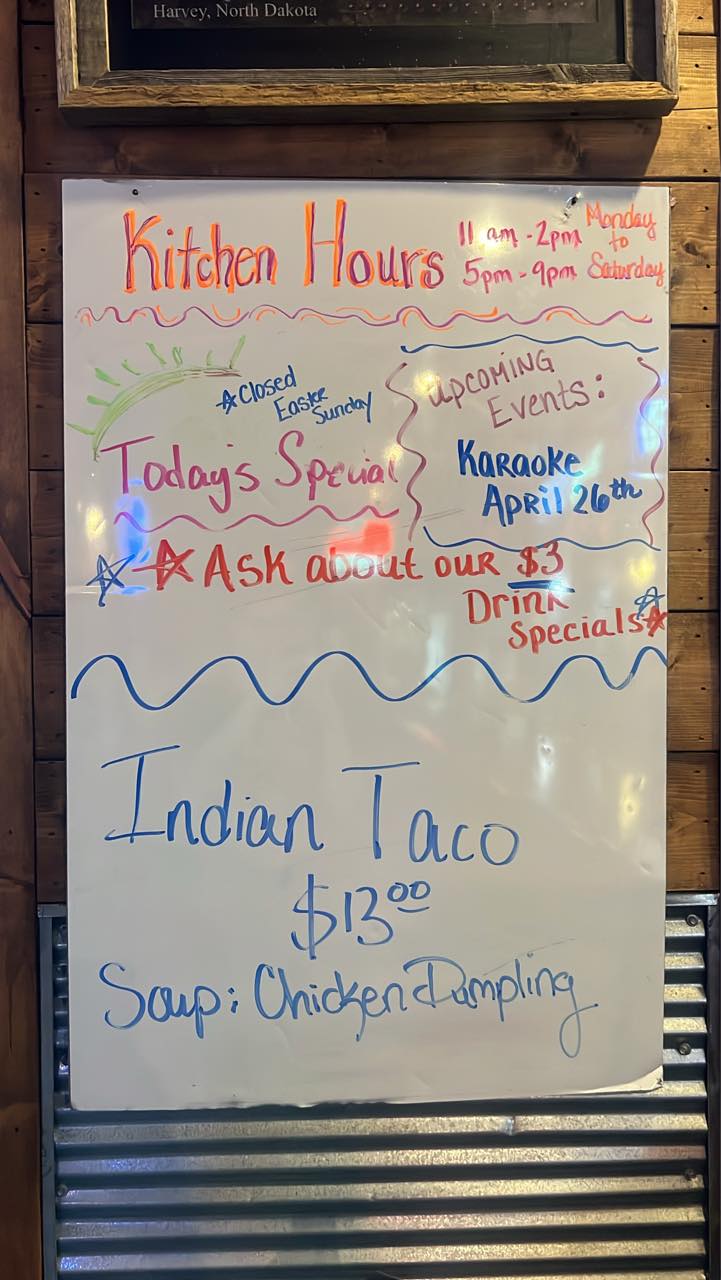 Harvey, North Dakota
Kitchen Hours
11 am - 2pm
5pm - 9pm
Monday
to
Saturday
Closed
Easter
Sunday
Today's Special
Upcoming
Events:
Karaoke
April 26th
Ask about our $3
Drink
Specials
Indian Taco
$13.00
Soup: Chicken Dumpling